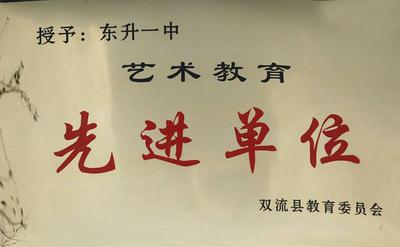 授予：东升一中
艺术教育
先进单位
双流县教育委员会